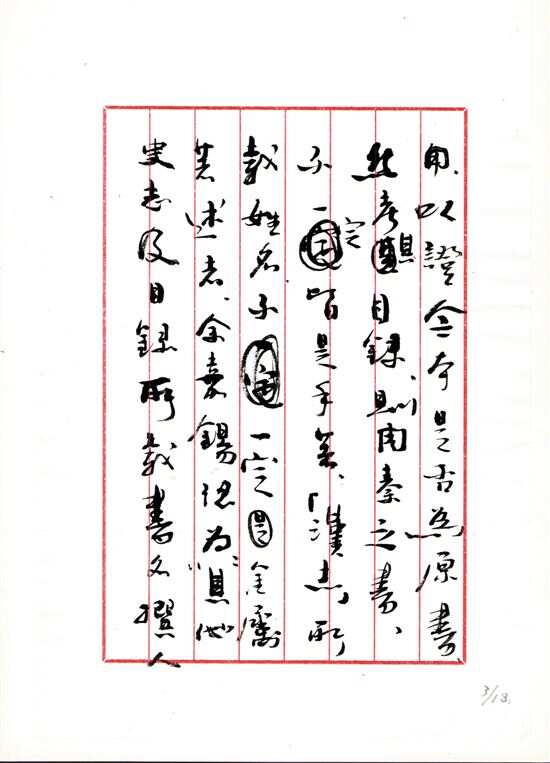 用以證今本是否為原書、
然考其目錄、則周秦之書、
不一定皆是手著、「漢志」所
載姓名不一定是全屬
著述者、余嘉錫認為「其他
史志及目錄所載書名撰人
3/13.